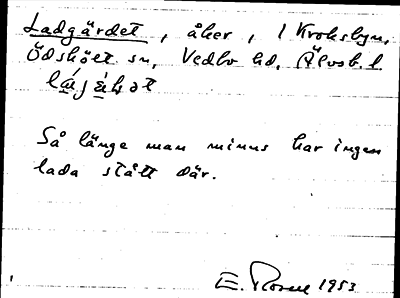 Ladgärdet, åker, 1 Kroksbyn,
Ödskölt sn, Vedbo hd, Älvsb. l
Så länge man minns har ingen
lada stått där.
E. Rosen 1953